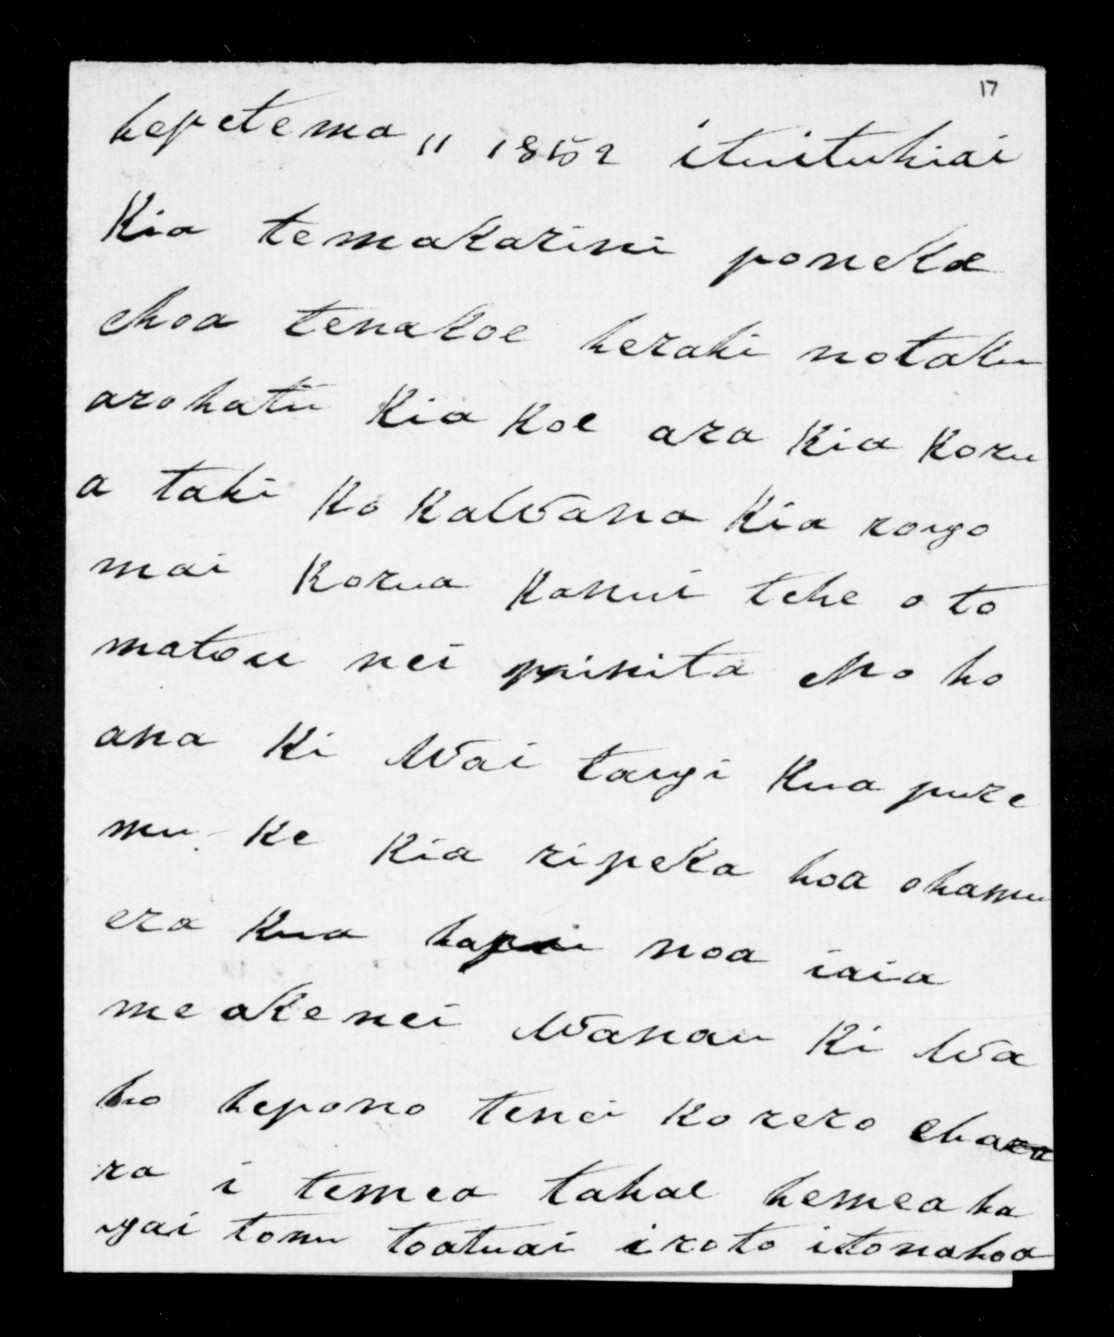 17
hepetema 11 1852 ituituhiai
Kia temakarini poneke
ehoa tenakoe herahi notaku
arohatu Kia Koe ara Kia Koru
a tahi Ko Kawana Kia rongo
mai Korua Kanui tehe o to
matou nei minita e No ho
ana Ki Wai tangi Kua pure
mu Ke Kia ripeka hoa ohamu
era Kua hapu noa iaia
meakenei Wanau Ki Wa
ho hepono tenei Korero ehara
ra i temea tahae hemea ha
ngai tonu toatuai iroto itonahoa